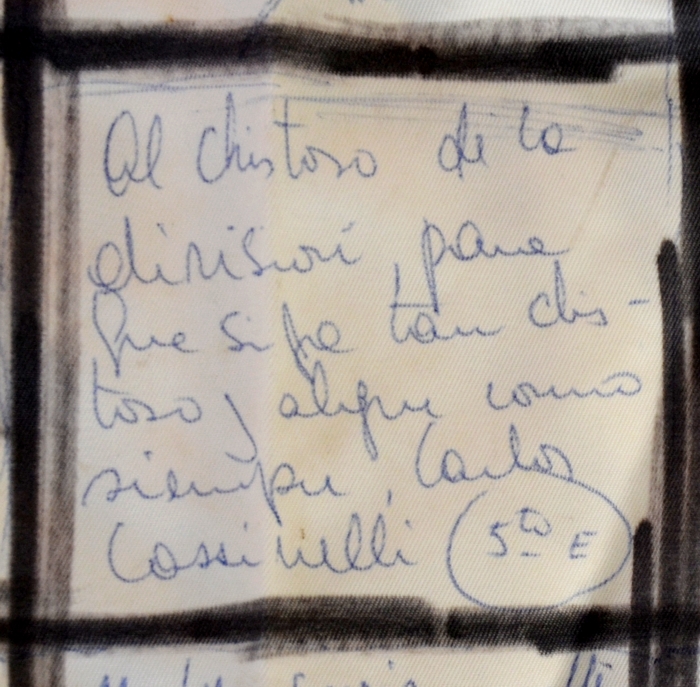 Al chistoso de la
división, para
que siga tan chis-
toso y alegre como
siempre, Carlos
Cassinelli 5to E